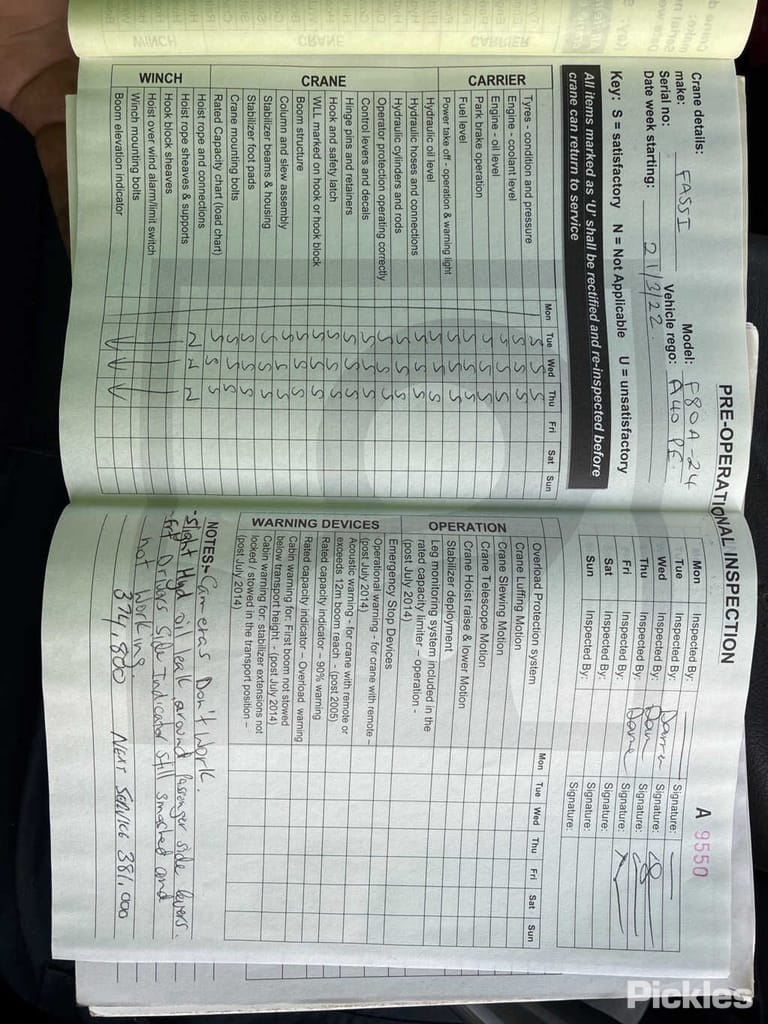 PRE-OPERATIONAL INSPECTION
A 9550
Crane details:
make: FASSI Model: F80A-24
Serial no: Vehicle rego: A40 PE
Date week starting: 21/3/22
Key: S = satisfactory N = Not Applicable U = unsatisfactory
All items marked as 'U' shall be rectified and re-inspected before
crane can return to service
Mon Tue Wed Thu Fri Sat Sun
CARRIER
Tyres - condition and pressure S S S
Engine - coolant level S S S
Engine - oil level S S S
Park brake operation S S S
Fuel level S S S
Power take off - operation & warning light S S S
CRANE
Hydraulic oil level S S S
Hydraulic hoses and connections S S S
Hydraulic cylinders and rods S S S
Operator protection operating correctly S S S
Control levers and decals S S S
Hinge pins and retainers S S S
Hook and safety latch S S S
WLL marked on hook or hook block S S S
Boom structure S S S
Column and slew assembly S S S
Stabilizer beams & housing S S S
Stabilizer foot pads S S S
Crane mounting bolts S S S
Rated Capacity chart (load chart) S S S
WINCH
Hoist rope and connections N N N
Hoist rope sheaves & supports
Hook block sheaves
Hoist over wind alarm/limit switch
Winch mounting bolts
Boom elevation indicator
Mon Inspected By:
Tue Inspected By: Signature:
Wed Inspected By: Darren Signature:
Thu Inspected By: Dan Signature:
Fri Inspected By: Dane Signature:
Sat Inspected By: Signature:
Sun Inspected By: Signature:
Signature:
Mon Tue Wed Thu Fri Sat Sun
OPERATION
Overload Protection system
Crane Luffing Motion
Crane Slewing Motion
Crane Telescope Motion
Crane Hoist raise & lower Motion
Stabilizer deployment
Leg monitoring system included in the
rated capacity limiter – operation -
(post July 2014)
WARNING DEVICES
Emergency Stop Devices
Operational warning - for crane with remote –
(post July 2014)
Acoustic warning - for crane with remote or
exceeds 12m boom reach - (post 2005)
Rated capacity indicator – 90% warning
Rated capacity indicator – Overload warning
Cabin warning for: First boom not stowed
below transport height - (post July 2014)
Cabin warning for: stabilizer extensions not
locked / stowed in the transport position –
(post July 2014)
NOTES- Cameras Don't Work.
- Slight Hyd oil leak around Passenger side levers.
- Frt Drivers Side Indicator Still smashed and
not working.
374,800 NEXT SERVICE 381,000
Pickles